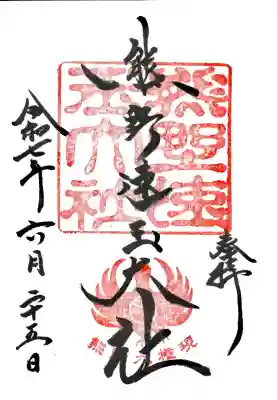 奉拝
熊野速玉大社
令和七年六月二十五日
熊野速玉大社
熊野権現